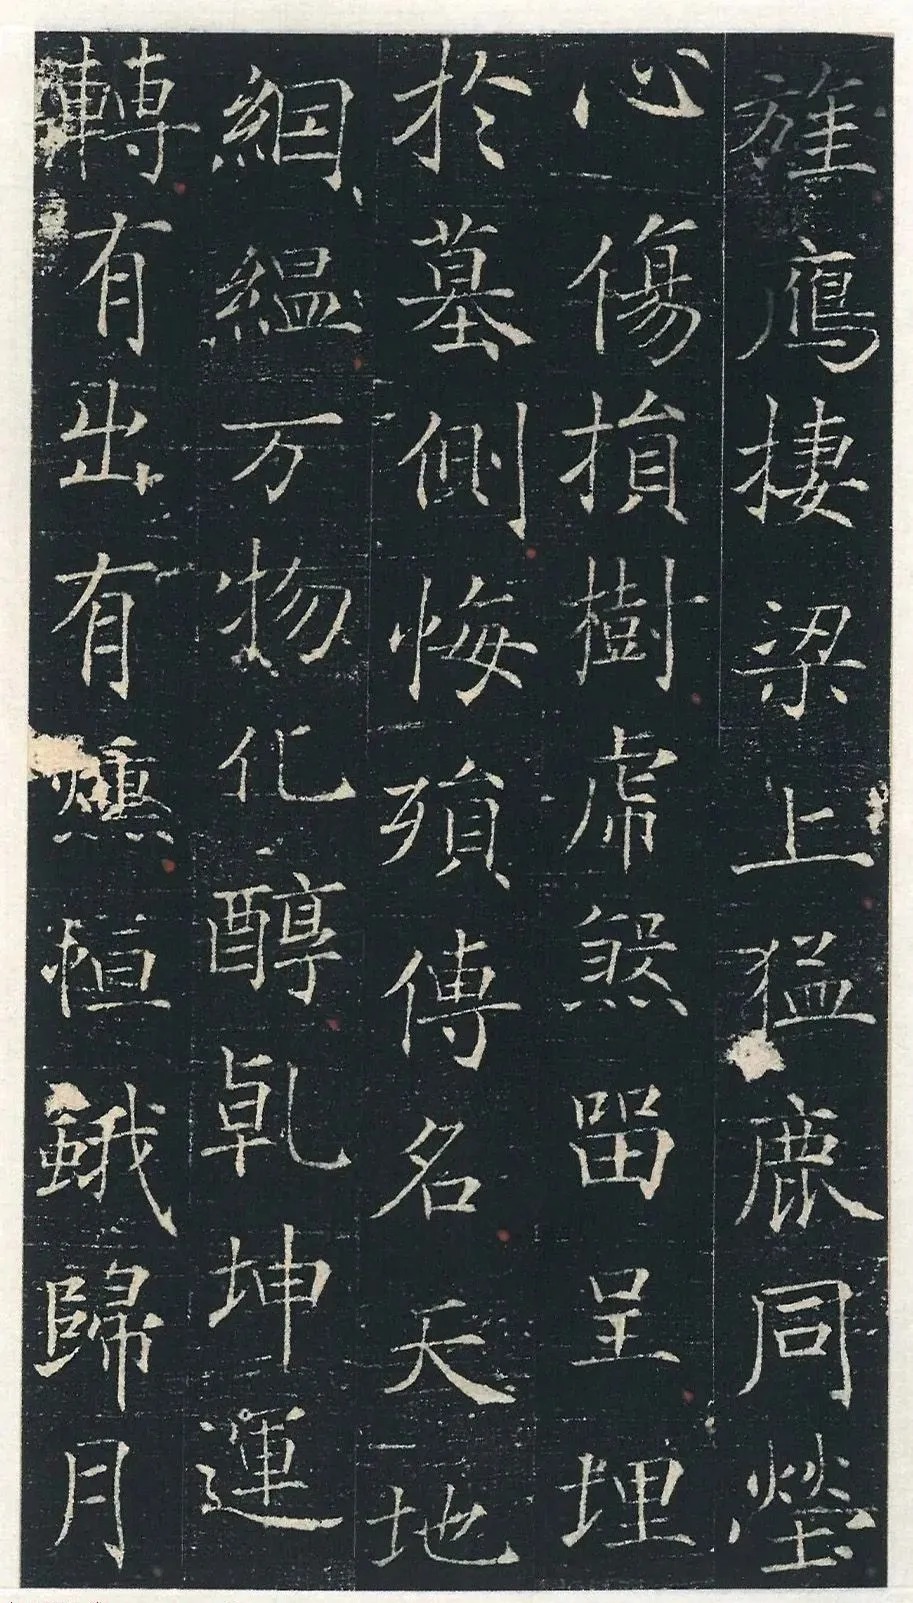 旌鴈棲梁上猛鹿同塋
心傷損樹虎煞留呈埋
於墓側悔殞傳名天地
絪縕万物化醇乾坤運
轉有出有植蛾歸月